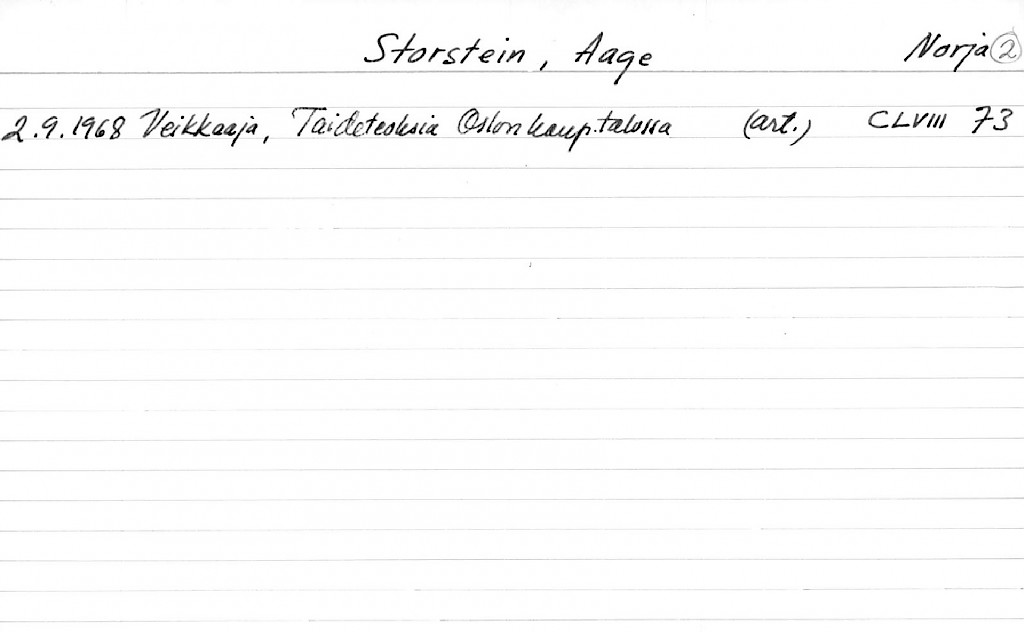 Storstein, Aage Norja 2
2.9.1968 Veikkaaja, Taideteoksia Oslon kaup.talossa (art.) CLVIII 73